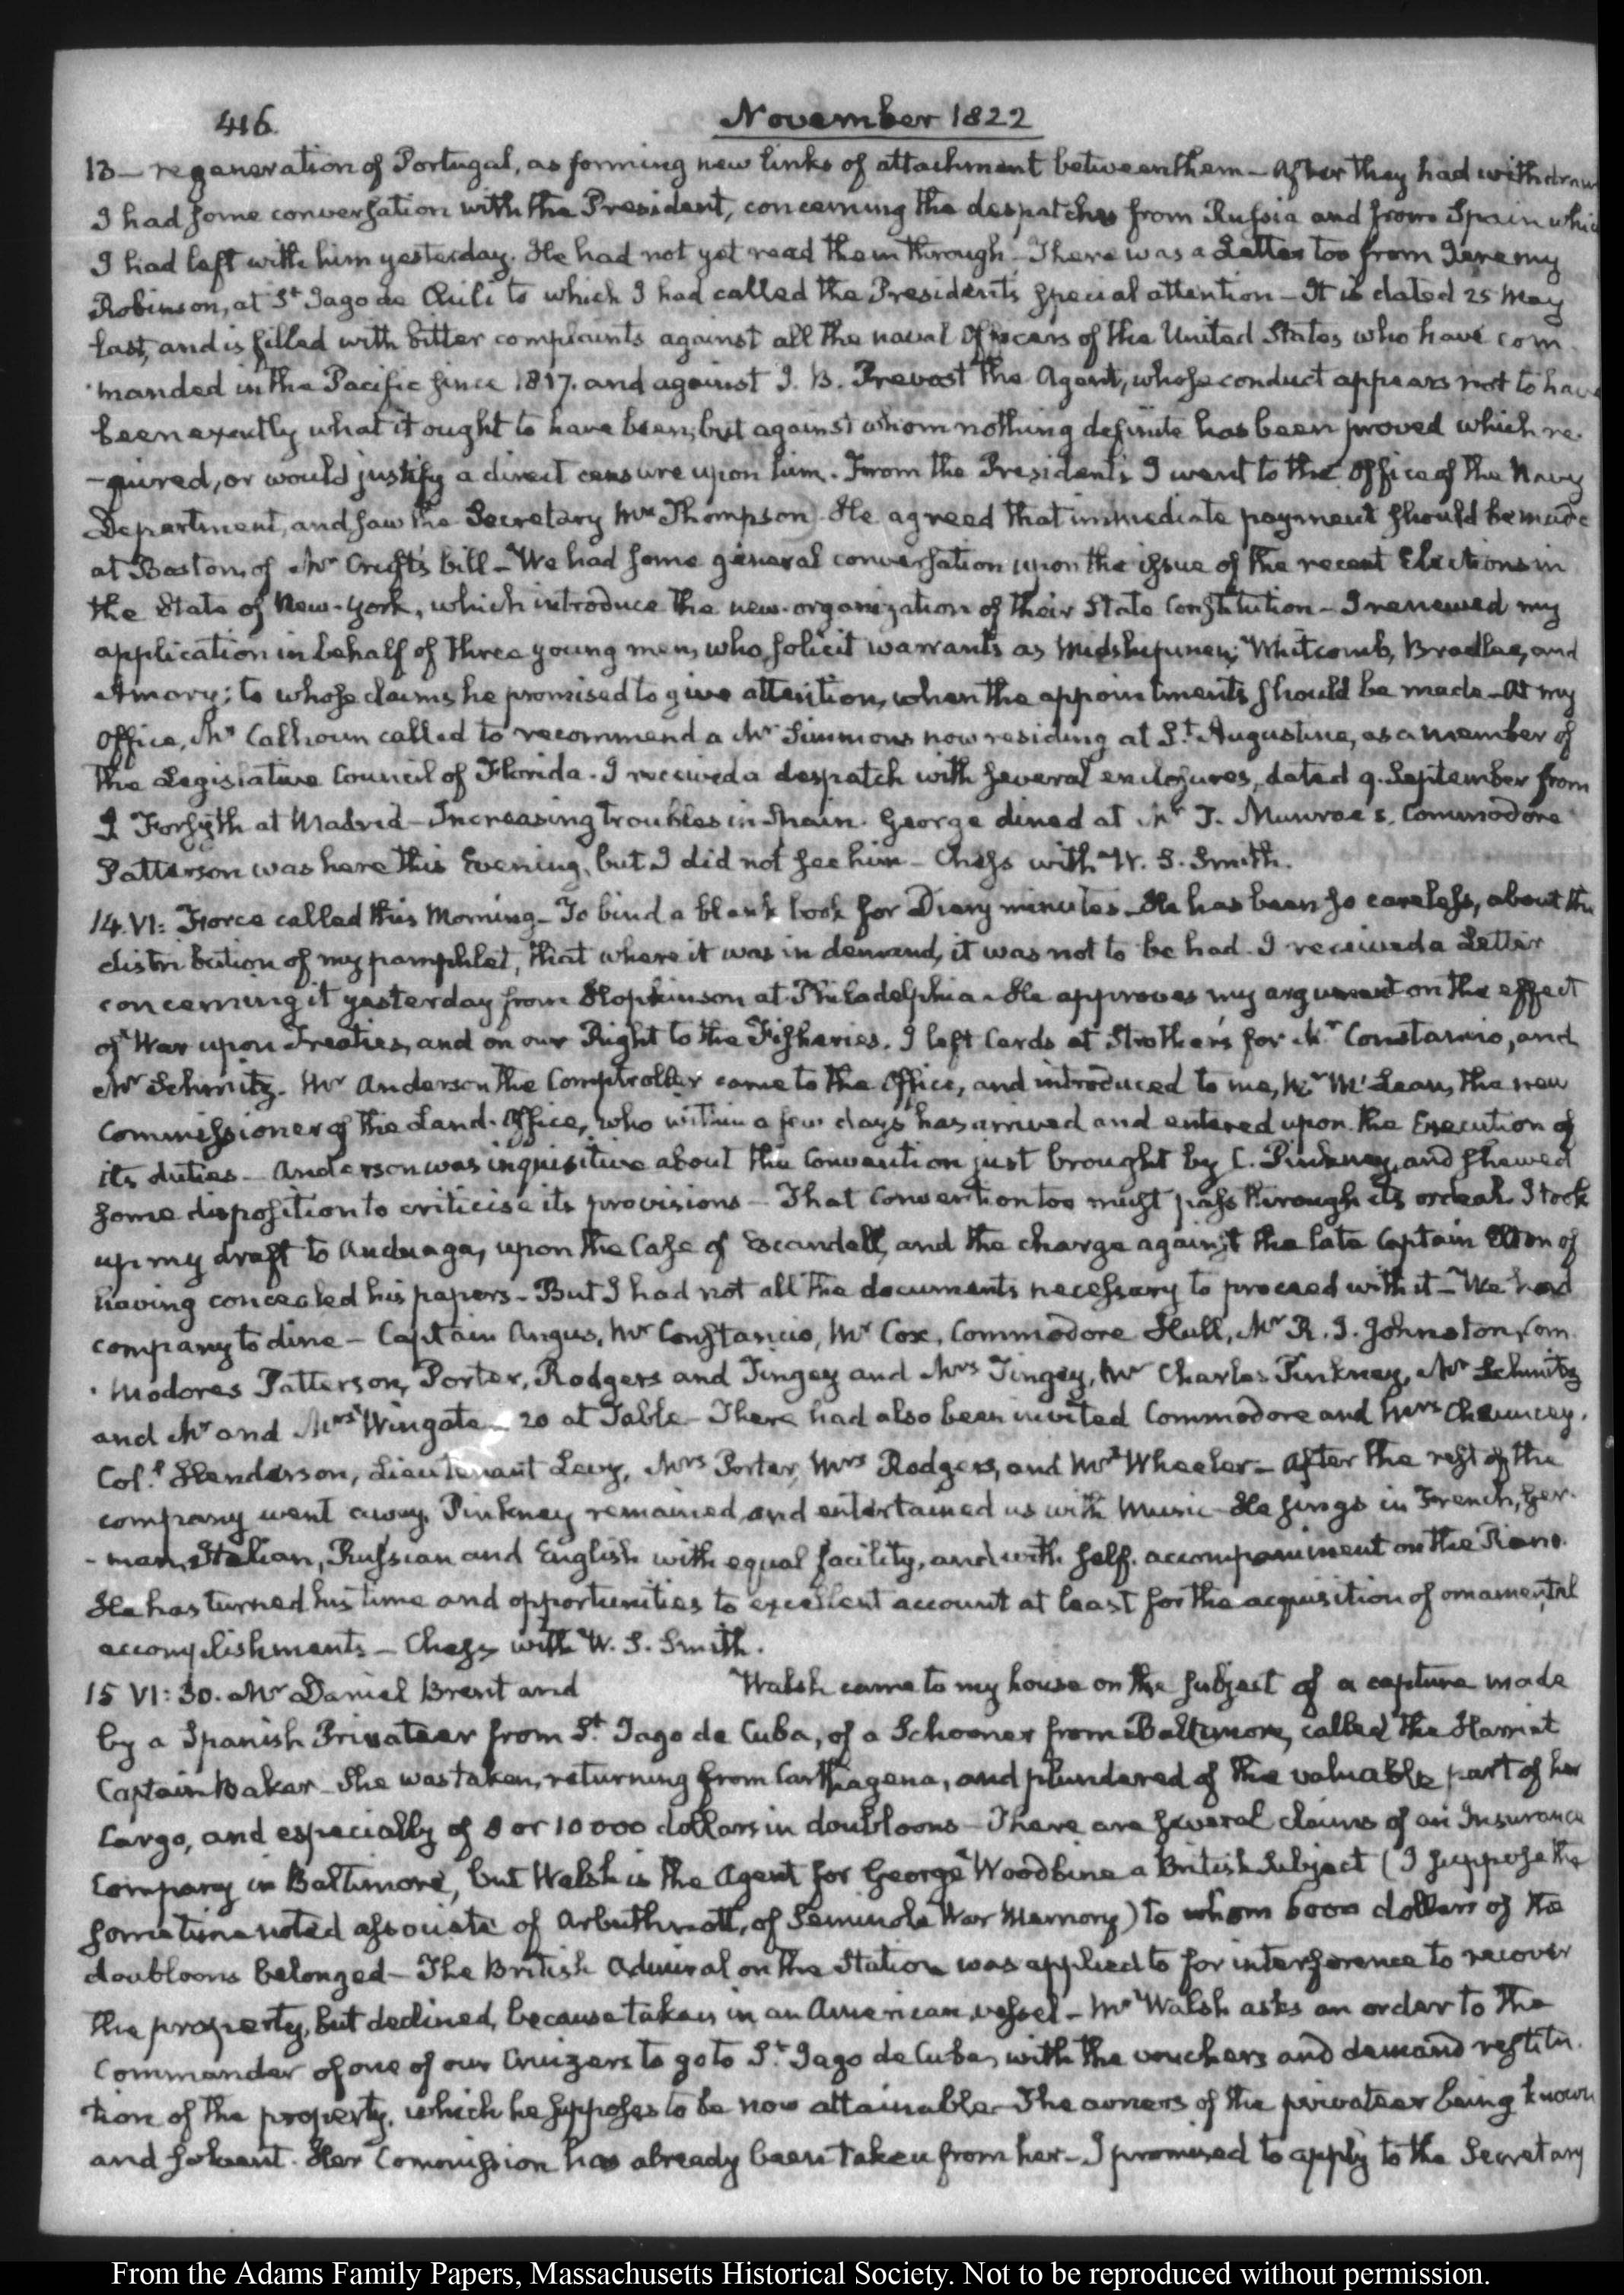 416.
November 1822
13 — regeneration of Portugal, as forming new links of attachment between them — After they had withdrawn
I had some conversation with the President, concerning the despatches from Russia and from Spain which
I had left with him yesterday. He had not yet read them through — There was a Letter too from Jeremy
Robinson, at St. Jago de Chili to which I had called the President's special attention — It is dated 25 May
last, and is filled with bitter complaints against all the naval Officers of the United States who have com-
-manded in the Pacific since 1817. and against J. B. Prevost the Agent, whose conduct appears not to have
been exactly what it ought to have been; but against whom nothing definite has been proved which re-
-quired, or would justify a direct censure upon him. From the President's I went to the Office of the Navy
Department, and saw the Secretary Mr Thompson. He agreed that immediate payment should be made
at Boston, of Mr Cruft's bill — We had some general conversation upon the issue of the recent Elections in
the State of New-York, which introduce the new organization of their State Constitution — I renewed my
application in behalf of three young men, who solicit warrants as Midshipmen; Whitcomb, Bradlee, and
Amory; to whose claims he promised to give attention, when the appointments should be made — At my
Office, Mr Calhoun called to recommend a Mr Simmons now residing at St. Augustine, as a member of
the Legislative Council of Florida. I received a despatch with several enclosures, dated 9. September from
J Forsyth at Madrid — Increasing troubles in Spain. George dined at Mr T. Munroe's. Commodore
Patterson was here this Evening, but I did not see him — Chess with W. S. Smith.
14. VI: Force called this Morning — To bind a blank book for Diary minutes — He has been so careless, about the
distribution of my pamphlet, that where it was in demand, it was not to be had. I received a Letter
concerning it yesterday from Hopkinson at Philadelphia. He approves my argument on the effect
of War upon Treaties, and on our Right to the Fisheries. I left Cards at Strother's for Mr Constancio, and
Mr Schmitz. Mr Anderson the Comptroller came to the Office, and introduced to me, Mr McLean, the new
Commissioner of the Land-Office, who within a few days has arrived and entered upon the Execution of
its duties — Anderson was inquisitive about the Convention just brought by C. Pinkney, and shewed
some disposition to criticise its provisions — That Convention too must pass through its ordeal. I took
up my draft to Anduaga, upon the Case of Escandell, and the charge against the late Captain Elton of
having concealed his papers — But I had not all the documents necessary to proceed with it — We had
company to dine — Captain Angus, Mr Constancio, Mr Cox, Commodore Hull, Mr R. J. Johnston, Com-
-modores Patterson, Porter, Rodgers and Tingey and Mrs Tingey, Mr Charles Pinkney, Mr Schmitz
and Mr and Mrs Wingate — 20 at Table — There had also been invited Commodore and Mrs Chauncey.
Col.l Henderson, Lieutenant Levy, Mrs Porter, Mrs Rodgers, and Mrs Wheeler — After the rest of the
company went away, Pinkney remained, and entertained us with Music — He sings in French, Ger-
-man, Italian, Russian and English with equal facility, and with self-accompaniment on the Piano.
He has turned his time and opportunities to excellent account at least for the acquisition of ornamental
accomplishments — Chess with W. S. Smith.
15 VI: 30. Mr Daniel Brent and Walsh came to my house on the subject of a capture made
by a Spanish Privateer from St. Jago de Cuba, of a Schooner from Baltimore, called the Harriet
Captain Baker — She was taken, returning from Carthagena, and plundered of the valuable part of her
Cargo, and especially of 8 or 10000 dollars in doubloons — There are several claims of an Insurance
Company in Baltimore, but Walsh is the Agent for George Woodbine a British Subject (I suppose the
sometime noted associate of Arbuthnott, of Seminole War Memory) to whom 6000 dollars of the
doubloons belonged — The British Admiral on the Station was applied to for interference to recover
the property, but declined, because taken in an American vessel — Mr Walsh asks an order to the
Commander of one of our Cruizers to go to St. Jago de Cuba, with the vouchers and demand restitu-
tion of the property, which he supposes to be now attainable — The owners of the privateer being known
and solvent. Her Commission has already been taken from her — I promised to apply to the Secretary
From the Adams Family Papers, Massachusetts Historical Society. Not to be reproduced without permission.